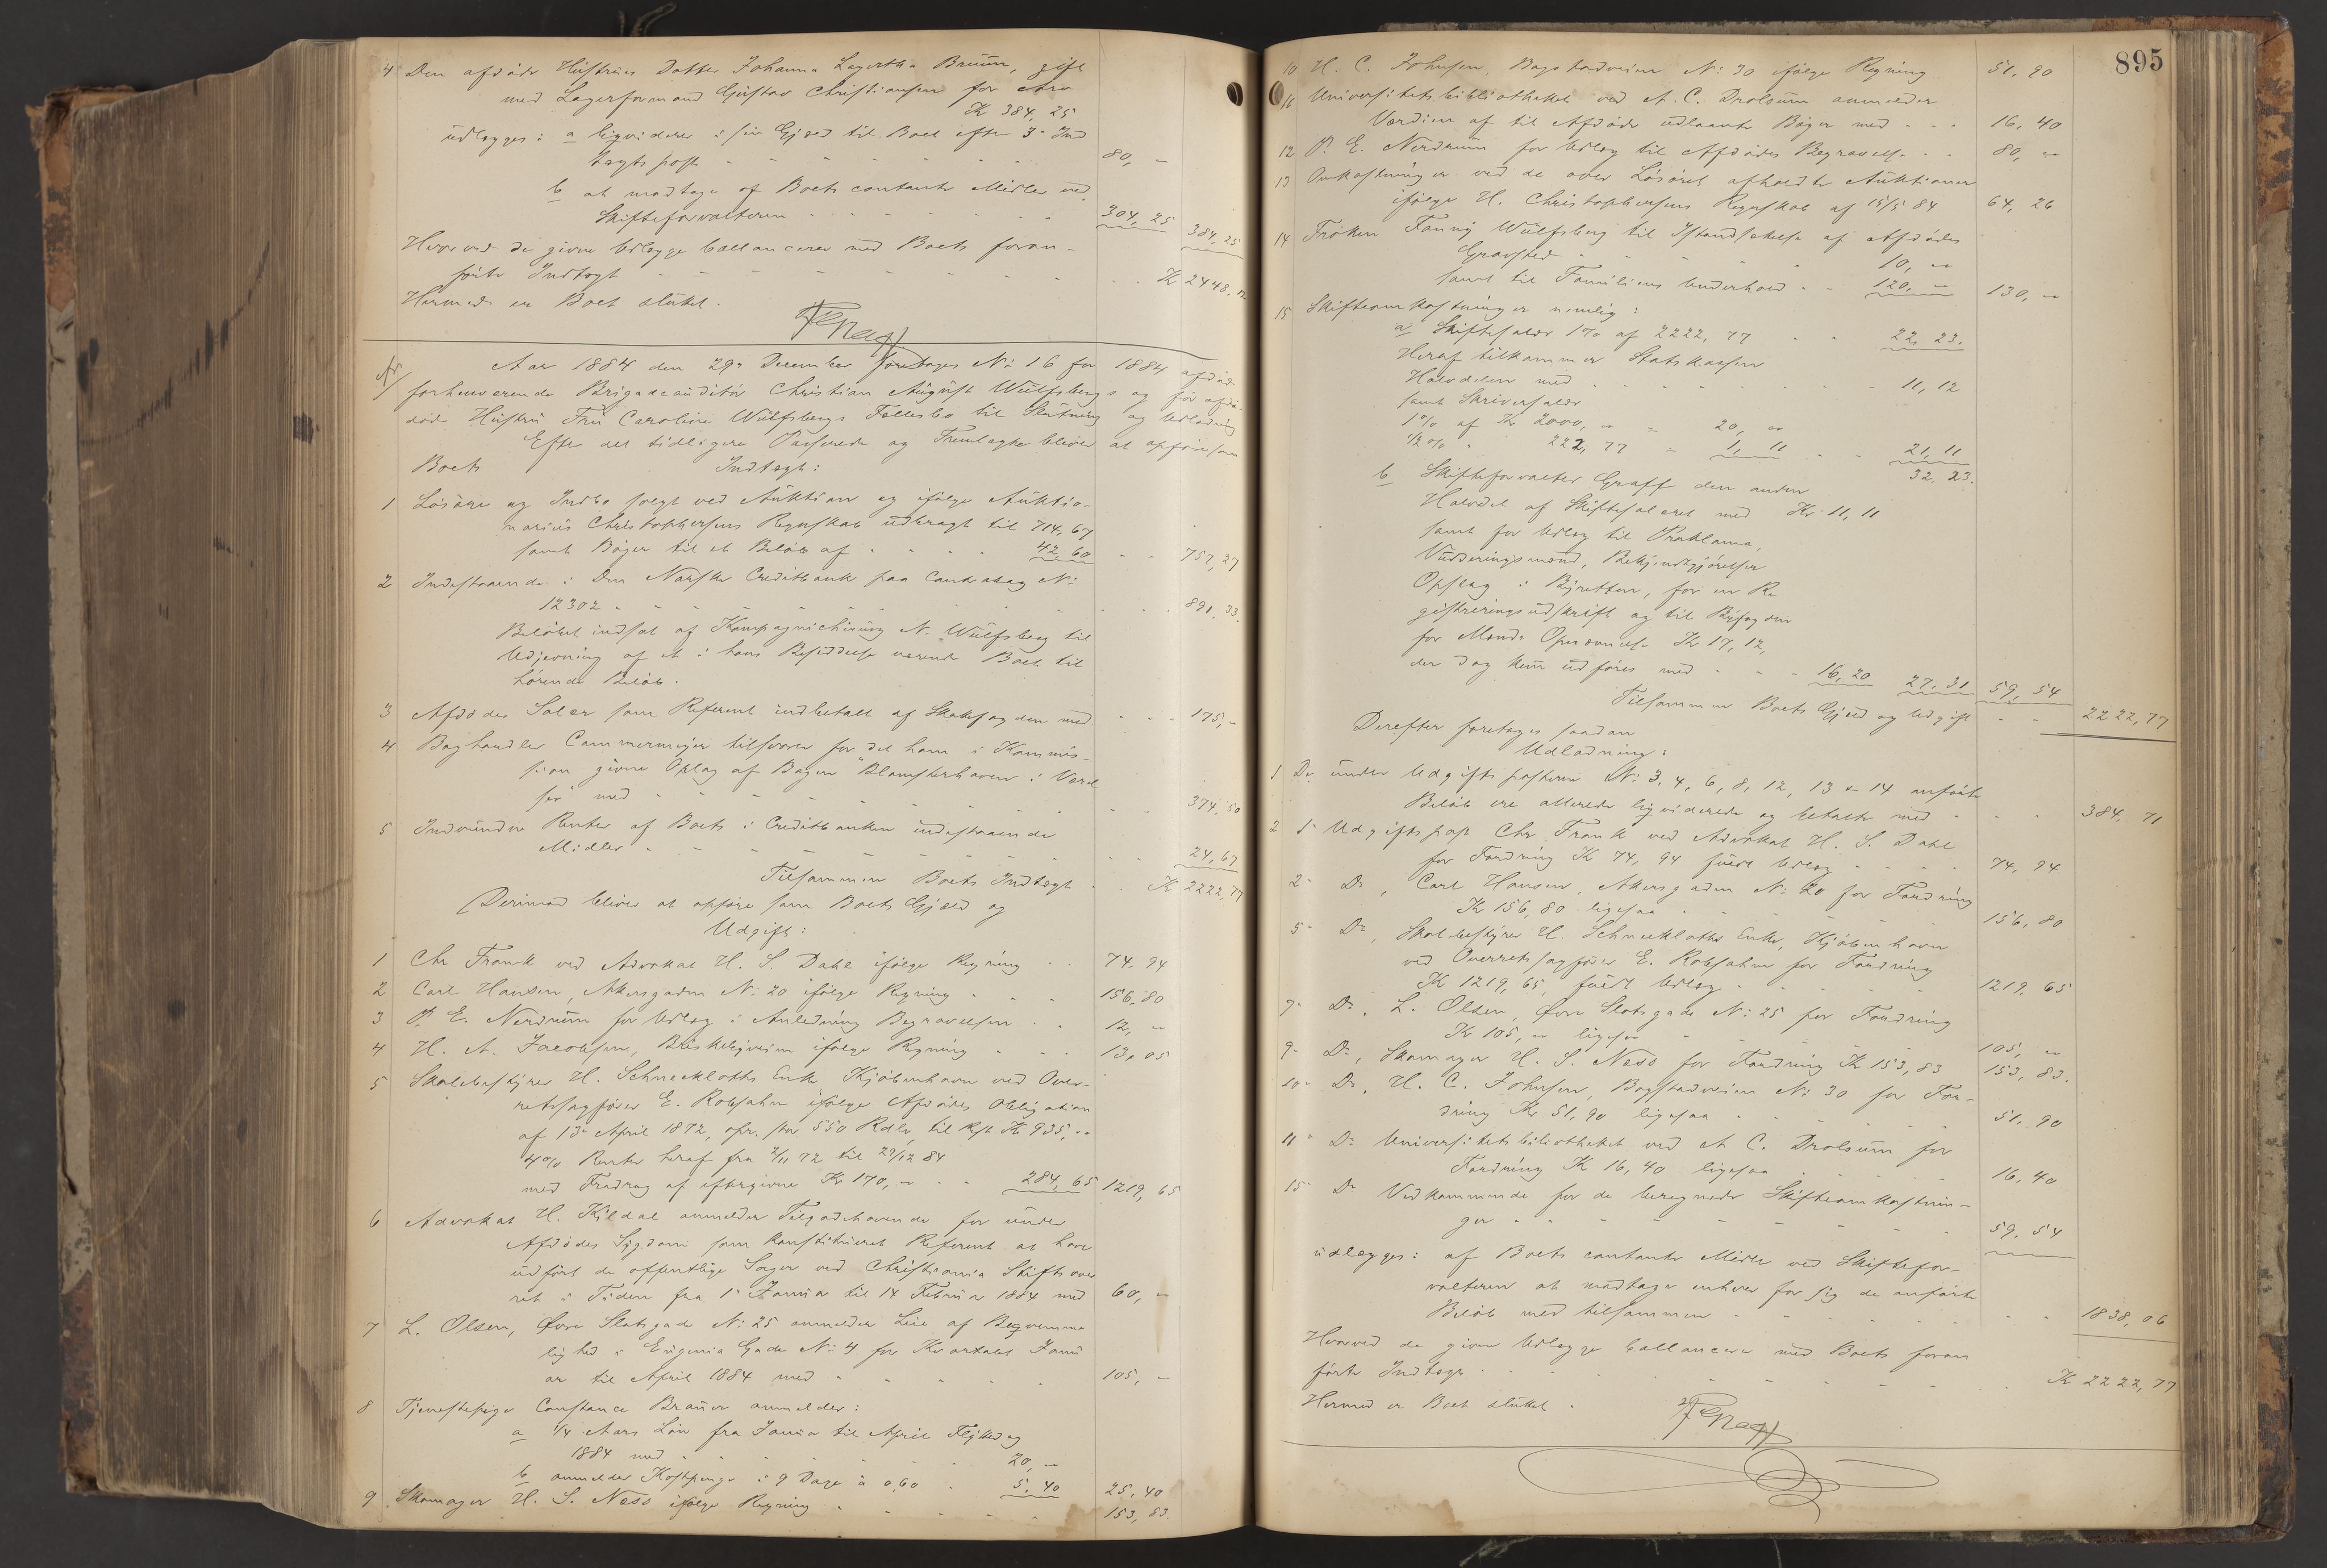 4 Den afdøde Hustrues Datter Johanna Lagertha Bruun, gift
med Lagerformand Gustav Christiansen for Arv
K 384, 25
udlægges: a liqviderer i sin Gjæld til Boet efter 3die Ind
tægtspost - - - 80, "
b at modtage af Boets contante Midler ved
Skifteforvalteren - - - 304, 25 384, 25
Hvorved de givne Udlægge ballancerer med Boets foran-
førte Indtægt - - - K 2448,
Hermed er Boet sluttet.
Aar 1884 den 29de December foretoges No 16 for 1884 afdøde
forhenværende Brigadeauditør Christian August Wulfsbergs og før afdø-
døde Hustru Fru Caroline Wulfsbergs Fællesbo til Slutning og Udlodning
Efter det tidligere Passerede og Fremlagte bliver at opføre som
Boets Indtægt:
1 Løsøre og Indbo solgt ved Auktion og ifølge Auktio-
narius Christophersens Regnskab udbragt til 714, 67
samt Bøger til et Beløb af - - 42, 60 - - 757, 27
2 Indestaaende i Den Norske Creditbank paa Contobog No
12302 - - - 891, 33.
Beløbet indsat af Kompagnichirurg N. Wulfsberg til
Udjevning af et i hans Besiddelse værende Boet til
hørende Beløb.
3 Afdødes Salær som Referent indbetalt af Statsfogden med - - 175, "
4 Boghandler Cammermeyer tilsvarer for det ham i Kommis-
sion givne Oplag af Bogen "Blomsterhaven i Værel
ser" med - - - 374, 50
5 Indvundne Renter af Boets i Creditbanken indestaaende
Midler - - - 24, 67
Tilsammen Boets Indtægt - - K 2222, 77
Derimod bliver at opføre som Boets Gjæld og
Udgift:
1 Chr Frank ved Advokat H. S. Dahl ifølge Regning - - 74, 94
2 Carl Hansen, Akersgaden No 20 ifølge Regning - - 156, 80
3 P. E. Nerdrum for Udlæg i Anledning Begravelsen - - 12, "
4 H. A. Jacobsen, Briskebyveien ifølge Regning - - 13, 05
5 Skolebestyrer H. Schneekloths Enke Kjøbenhavn ved Over-
retssagfører E. Robsahm ifølge Afdødes Obligation
af 13de April 1872, opr. stor 550 Rdlr, til Rest Kr 935, "
4% Renter heraf fra 2/11 72 til 29/12 84
med Fradrag af eftergivne Kr 170, " - - 284, 65 1219, 65
6 Advokat H. Kildal anmelder Tilgodehavende for under
Afdødes Sygdom som konstitueret Referent at have
udført de offentlige Sager ved Christiania Stiftsover
ret i Tiden fra 1ste Januar til 14 Februar 1884 med 60, "
7 L. Olsen, Øvre Slotsgade No 25 anmelder Leie af Beqvemme
lighed i Eugenia Gade No 4 for Kvartalet Janu
ar til April 1884 med - - 105, "
8 Tjenestepige Constance Brauer anmelder:
a 1/4 Aars Løn fra Januar til April Flyttedag
1884 med - - - 20, "
b anmelder Kostpenge i 9 Dage à 0,60 - 5, 40 25, 40
9 Skomager H. S. Næss ifølge Regning - - - 153, 83.
895
10 H. C. Johnsen, Bogstadveien No 30 ifølge Regning 51, 90
11 Universitetsbibliotheket ved A. C. Drolsum anmelder
Værdien af til Afdøde udlaante Bøger med - - - 16, 40
12 P. E. Nerdrum for Udlæg til Afdødes Begravelse - - 80, "
13 Omkostninger ved de over Løsøret afholdte Auktioner
ifølge H. Christophersens Regnskab af 15/5 84 64, 26
14 Frøken Fanny Wulfsberg til Istandsættelse af Afdødes
Gravsted - - - 10, "
samt til Familiens Underhold - - 120, " 130, "
15 Skifteomkostninger nemlig:
a Skiftesalær 1% af 2222, 77 - - 22, 23.
Heraf tilkommer Statskassen
Halvdelen med - - - 11, 12
samt Skriversalær
1% af Kr 2000, " = 20, "
1/2 % - 222, 77 = 1, 11 - - 21, 11
32, 23.
b Skifteforvalter Graff den anden
Halvdel af Skiftesalæret med Kr. 11, 11
samt for Udlæg til Proklama,
Vurderingsmænd, Bekjendtgjørelser
Opslag i Byretten, for en Re
gistreringsudskrift og til Byfogden
for Mænds Opnævnelse Kr 17, 12,
der dog kun udføres med - - - 16, 20 27, 31 59, 54
Tilsammen Boets Gjæld og Udgift - - 2222, 77
Derefter foretoges saadan
Udlodning:
1 De under Udgiftsposterne No 3, 4, 6, 8, 12, 13 & 14 anførte
Beløb ere allerede liqviderede og betalte med - - - 384, 71
2 1ste Udgiftspost Chr. Frank ved Advokat H. S. Dahl
for Fordring K 74, 94 fuldt Udlæg - - - 74, 94
2den Do, Carl Hansen, Akersgaden No 20 for Fordring
Kr 156, 80 ligesaa - - - 156, 80
5te Do, Skolebestyrer H. Schneekloths Enke, Kjøbenhavn
ved Overretssagfører E. Robsahm for Fordring
K 1219, 65, fuldt Udlæg - - - 1219, 65
7de Do, L. Olsen, Øvre Slotsgade No 25 for Fordring
Kr 105, " ligesaa - - - 105, "
9de Do, Skomager H. S. Næss for Fordring K 153, 83 153, 83.
10de Do, H. C. Johnsen, Bogstadveien No 30 for For-
dring Kr. 51, 90 ligesaa - - - 51, 90
11te Do Universitetsbibliotheket ved A C. Drolsum for
Fordring K 16, 40 ligesaa - - - 16, 40
15de Do Vedkommende for de beregnede Skifteomkostnin-
ger - - - 59, 54
udlægges: af Boets contante Midler ved Skiftefor-
valteren at modtage enhver for sig de anførte
Beløb med tilsammen - - - 1838, 06
Hvorved de givne Udlægge ballancerer med Boets foran
førte Indtægt - - - K 2222, 77
Hermed er Boet sluttet.